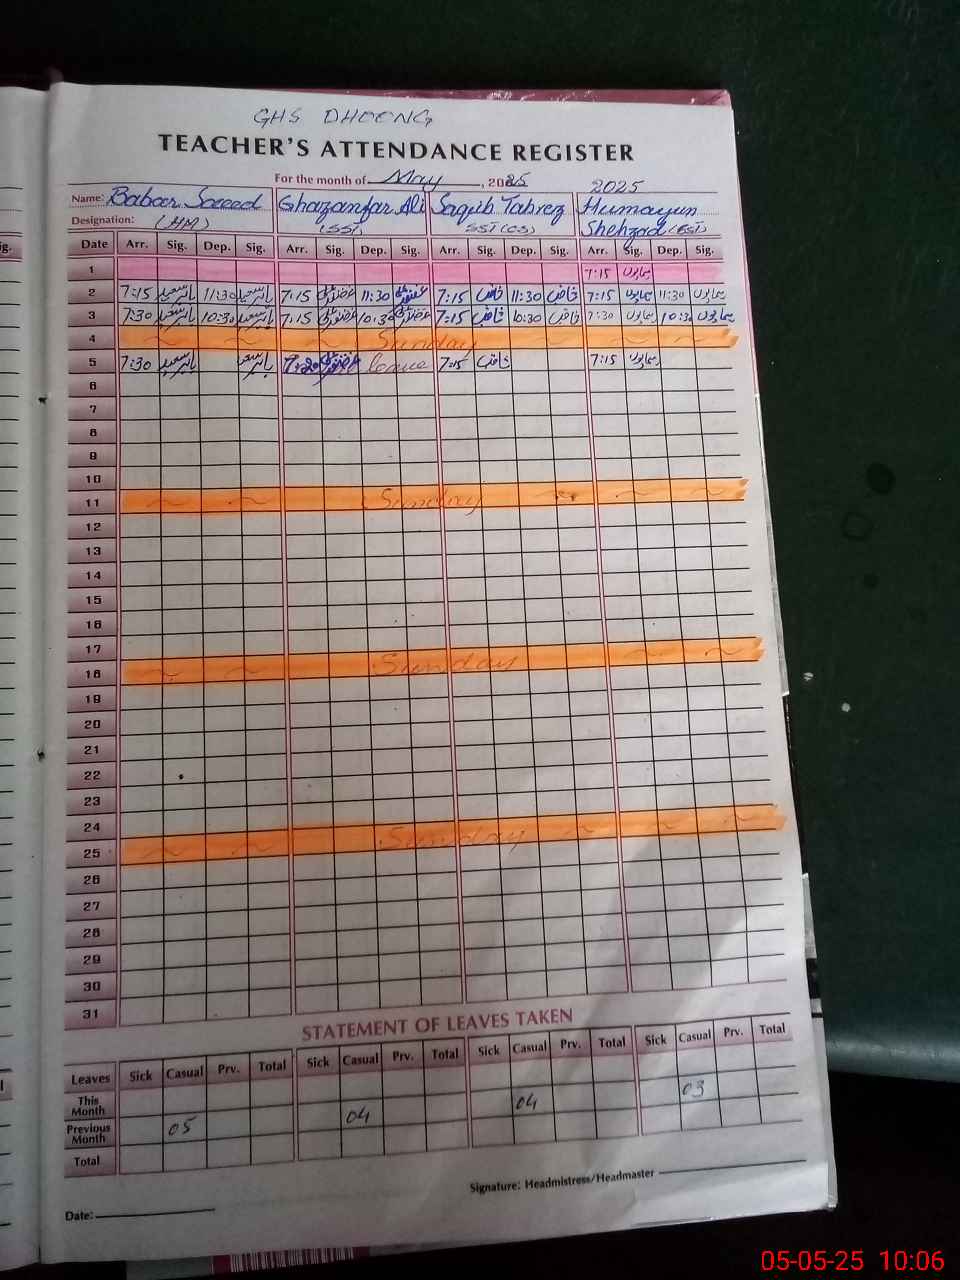 GHS DHOONG
TEACHER'S ATTENDANCE REGISTER
For the month of May, 2025 2025
Name: Babar Saeed Ghazanfar Ali Saqib Tabrez Humayun
Designation: (HM) (SST) SST(CS) Shehzad (EST)
ig. Date Arr. Sig. Dep. Sig. Arr. Sig. Dep. Sig. Arr. Sig. Dep. Sig. Arr. Sig. Dep. Sig.
1 7:15 ہمایوں
2 7:15 بابر سعید 11:30 بابر سعید 7:15 11:30 7:15 ثاقب 11:30 ثاقب 7:15 ہمایوں 11:30 ہمایوں
3 7:30 بابر سعید 10:30 بابر سعید 7:15 10:30 7:15 ثاقب 10:30 ثاقب 7:30 ہمایوں 10:30 ہمایوں
4 Sunday
5 7:30 بابر سعید بابر سعید leave 7:15 ثاقب 7:15 ہمایوں
6
7
8
9
10
11 Sunday
12
13
14
15
16
17
18 Sunday
19
20
21
22
23
24
25 Sunday
26
27
28
29
30
31
STATEMENT OF LEAVES TAKEN
Leaves Sick Casual Prv. Total Sick Casual Prv. Total Sick Casual Prv. Total Sick Casual Prv. Total
This Month
Previous Month 05 04 04 03
Total
Signature: Headmistress/Headmaster
Date:
05-05-25 10:06